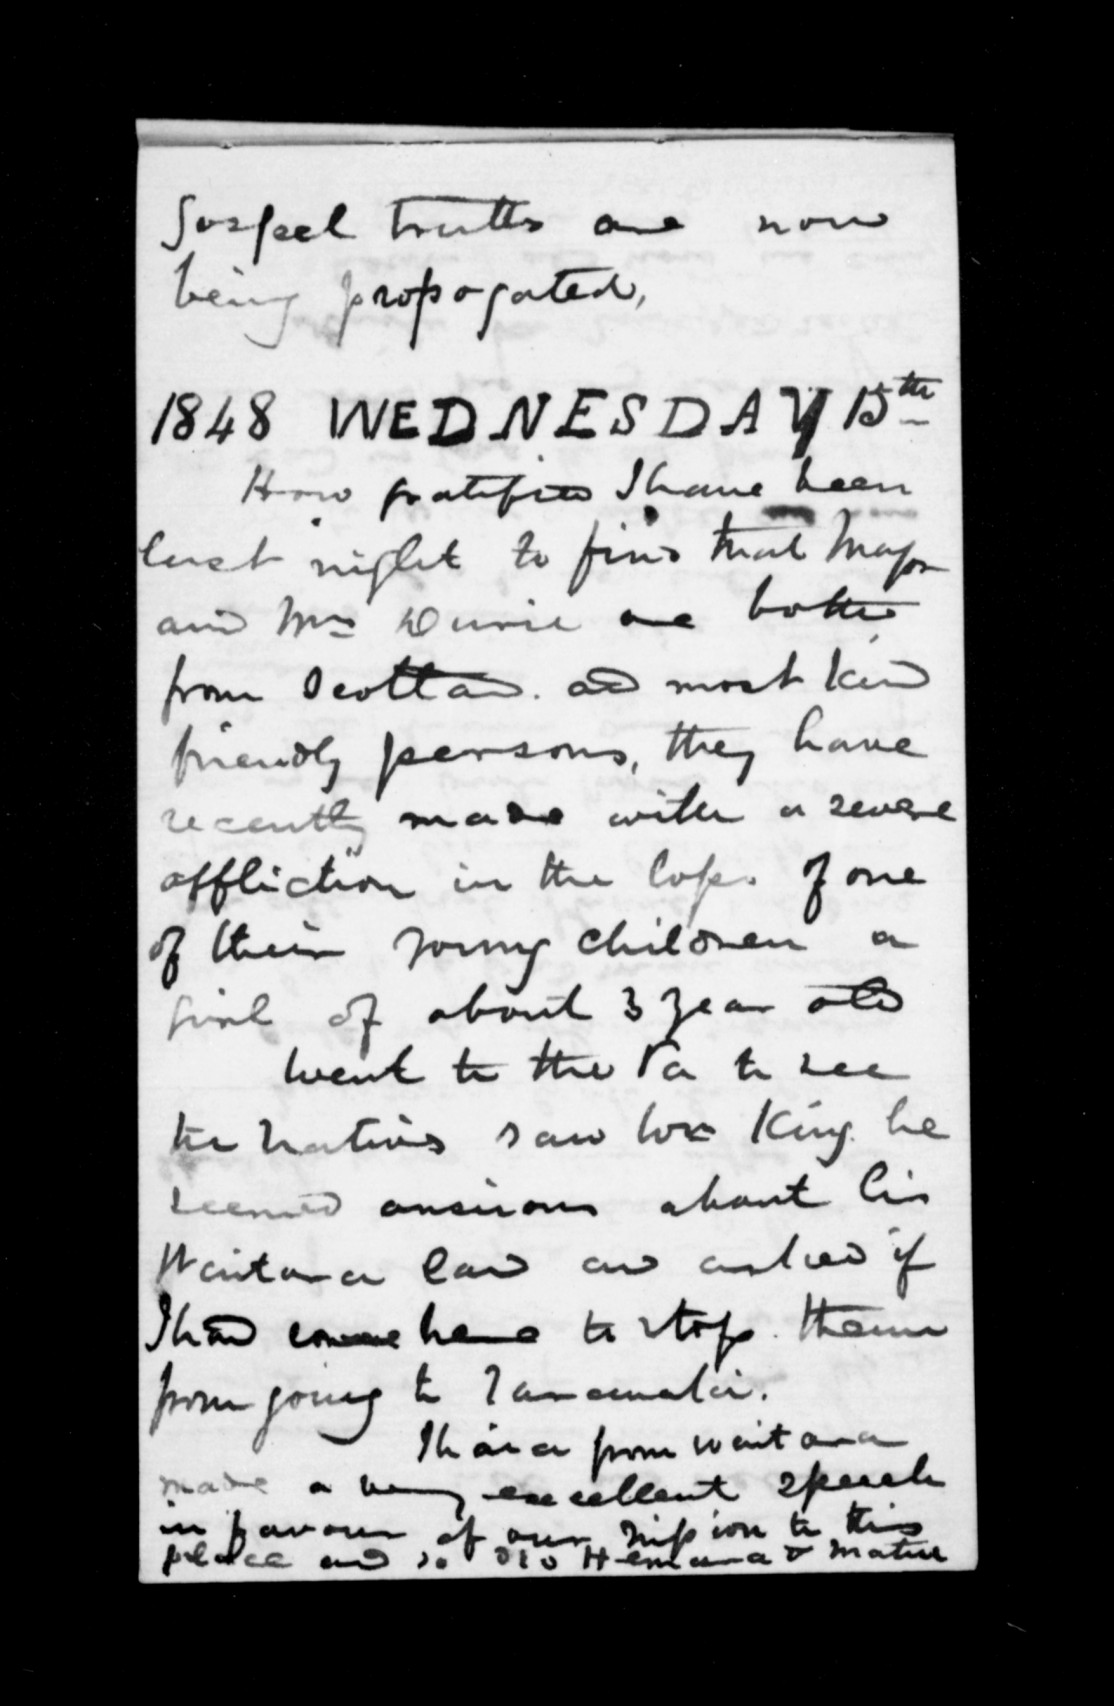 Gospel truths are now
being propogated,
1848 WEDNESDAY 15th
How gratified I have been
last night to find that Major
and Mrs Durie are both
from Scotland. and most kind
friendly persons, they have
recently made with a severe
affliction in the loss of one
of their young children a
girl of about 3 year old
Went to the Pa to see
the natives saw Wm King he
seemed ansious about his
Waitara land and asked if
I had come here to stop them
from going to Taranaki.
Ihaia from Waitara
made a very excellent speech
in favour of our mission to this
place and so did Hemara &